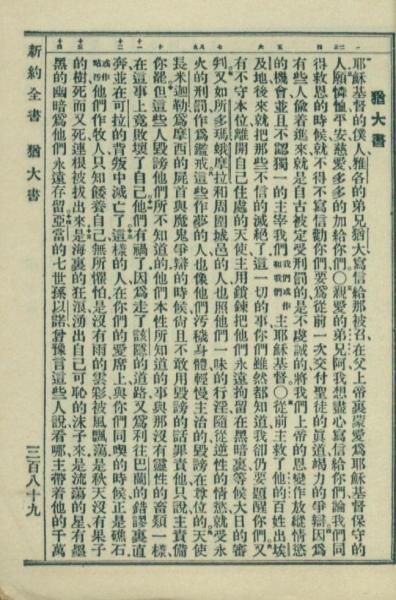 猶大書
一
二
三
四
五
六
七
八
九
十
十一
十二
十三
十四
耶穌基督的僕人雅各的弟兄猶大寫信給那被召在父上帝裏蒙愛爲耶穌基督保守的
人願憐恤平安慈愛多多的加給你們○親愛的弟兄阿我想盡心寫信給你們論我們同
得救恩的時候就不得不寫信勸你們要爲從前一次交付聖徒的眞道竭力的爭辯因爲
有些人偷着進來就是自古被定受刑罰的是不虔誠的將我們上帝的恩變作放縱情慾
的機會並且不認獨一的主宰我們我們或作和我們主耶穌基督○從前主救了他的百姓出埃
及地後來就把那些不信的滅絕了這一切的事你們雖然都知道我卻仍要題醒你們又
有不守本位離開自己住處的天使主用鎖鍊把他們永遠拘留在黑暗裏等候大日的審
判又如所多瑪蛾摩拉和周圍城邑的人也照他們一味的行淫隨從逆性的情慾就受永
火的刑罰作爲鑑戒這些作夢的人也像他們污穢身體輕慢主治的毀謗在尊位的天使
長米迦勒爲摩西的屍首與魔鬼爭辯的時候尙且不敢用毀謗的話罪責他只說主責備
你罷但這些人毀謗他們所不知道的他們本性所知道的事與那沒有靈性的畜類一樣
在這事上竟敗壞了自己他們有禍了因爲走了該隱的道路又爲利往巴蘭的錯謬裏直
奔並在可拉的背叛中滅亡了這樣的人在你們的愛席上與你們同喫的時候正是礁石
或作玷污他們作牧人只知餧養自己無所懼怕是沒有雨的雲彩被風飄蕩是秋天沒有果子
的樹死而又死連根被拔出來是海裏的狂浪湧出自己可恥的沫子來是流蕩的星有墨
黑的幽暗爲他們永遠存留亞當的七世孫以諾曾豫言這些人說看哪主帶着他的千萬
新約全書 猶大書 三百八十九